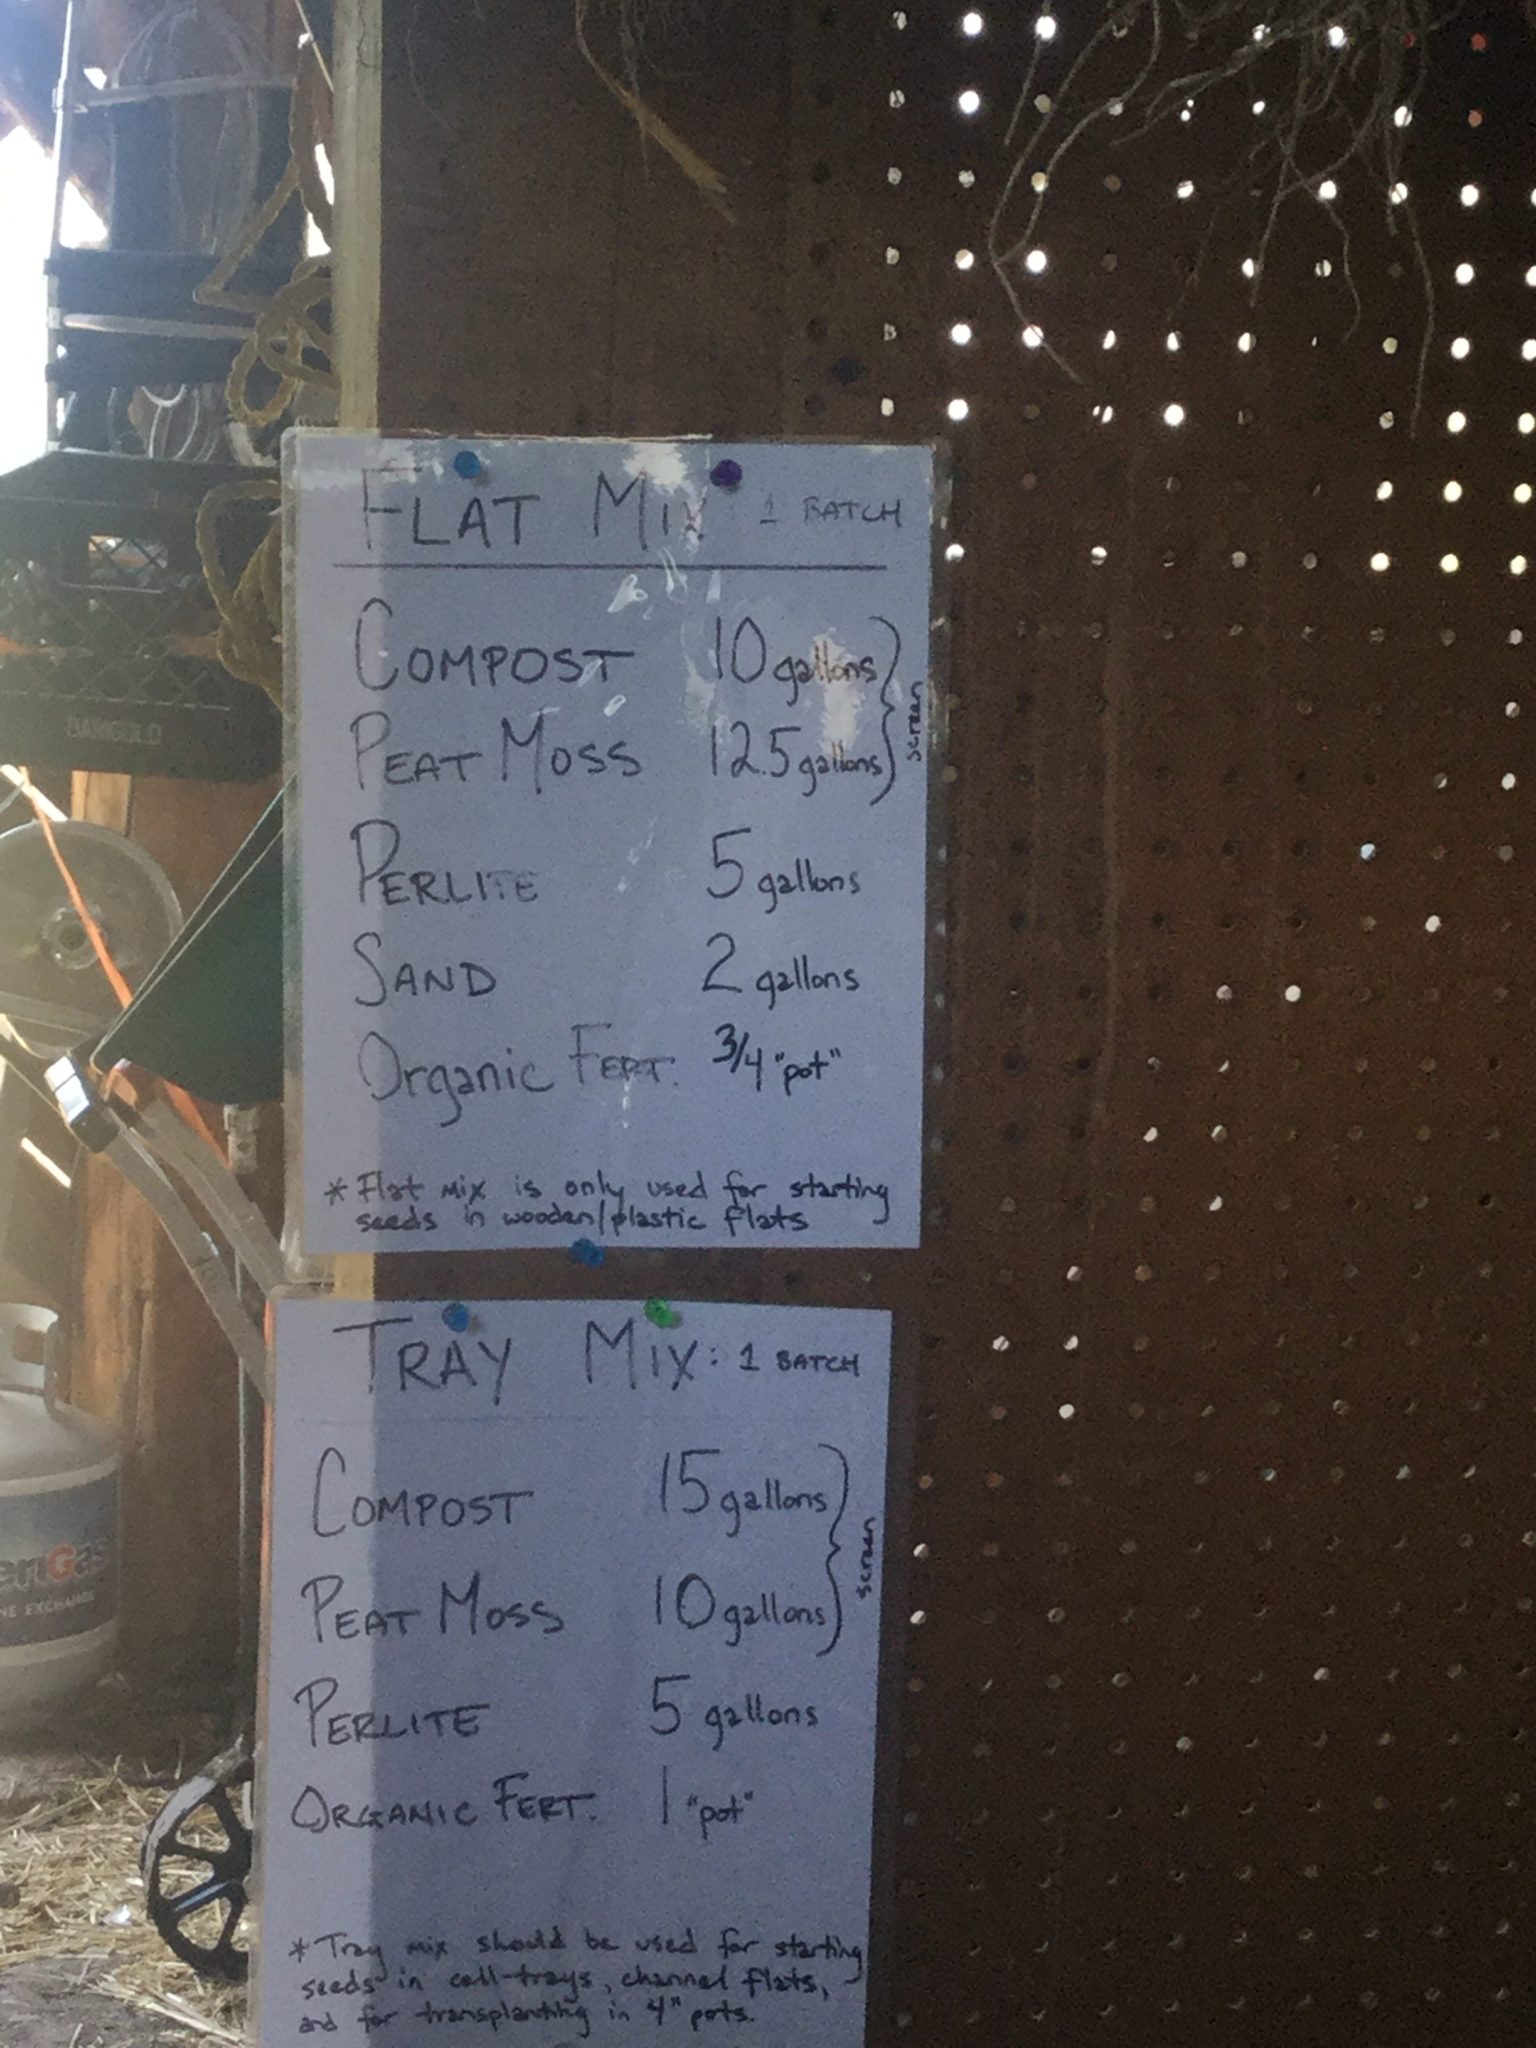 FLAT MIX 1 BATCH
COMPOST 10 gallons
PEAT MOSS 12.5 gallons
screen
PERLITE 5 gallons
SAND 2 gallons
Organic FERT. 3/4 "pot"
* Flat mix is only used for starting
seeds in wooden/plastic flats
TRAY MIX: 1 BATCH
COMPOST 15 gallons
PEAT MOSS 10 gallons
screen
PERLITE 5 gallons
ORGANIC FERT. 1 "pot"
* Tray mix should be used for starting
seeds in cell-trays, channel flats,
and for transplanting in 4" pots.
DARIGOLD
enGas
NE EXCHANGE